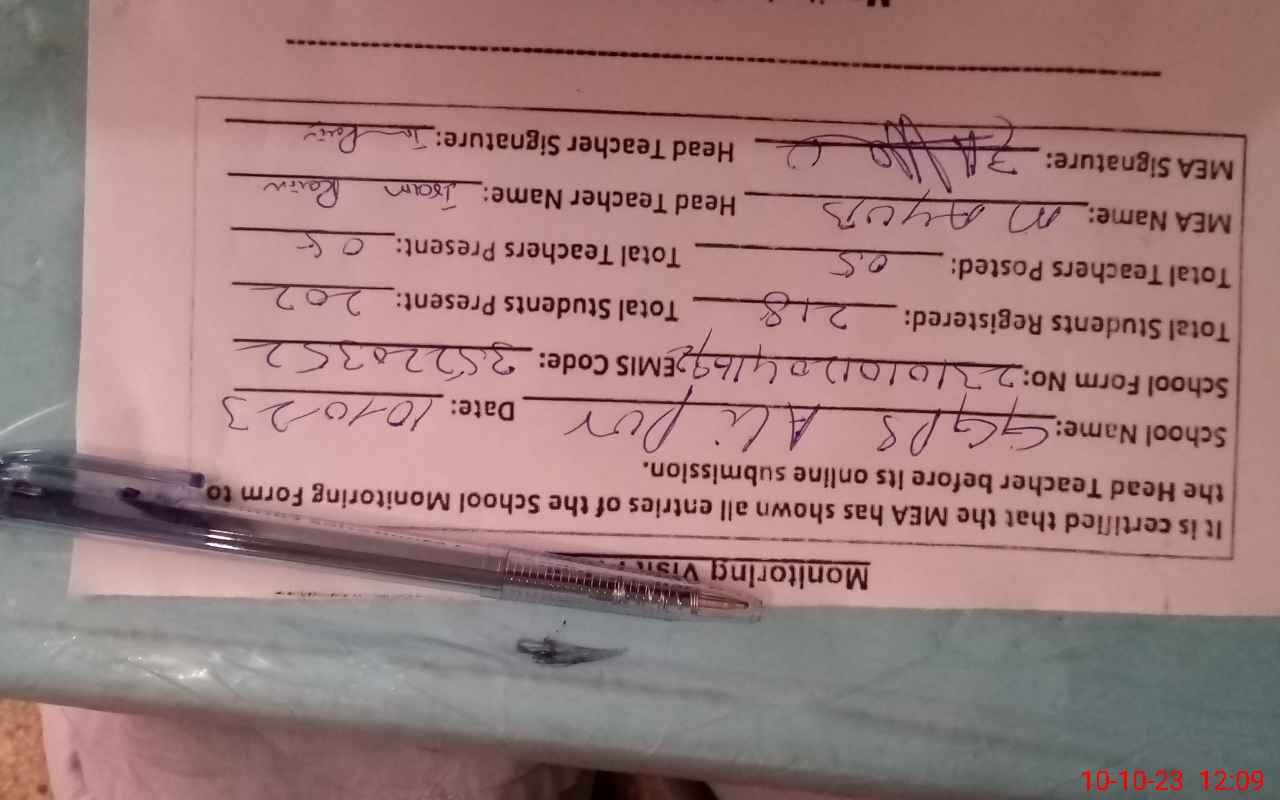 Monitoring Visit
It is certified that the MEA has shown all entries of the School Monitoring Form to
the Head Teacher before its online submission.
School Name: GGPS Ali pur Date: 10-10-23
School Form No: EMIS Code: 35220352
Total Students Registered: 218 Total Students Present: 202
Total Teachers Posted: 05 Total Teachers Present: 05
MEA Name: M AYUB Head Teacher Name: Iram
MEA Signature: Head Teacher Signature:
10-10-23 12:09